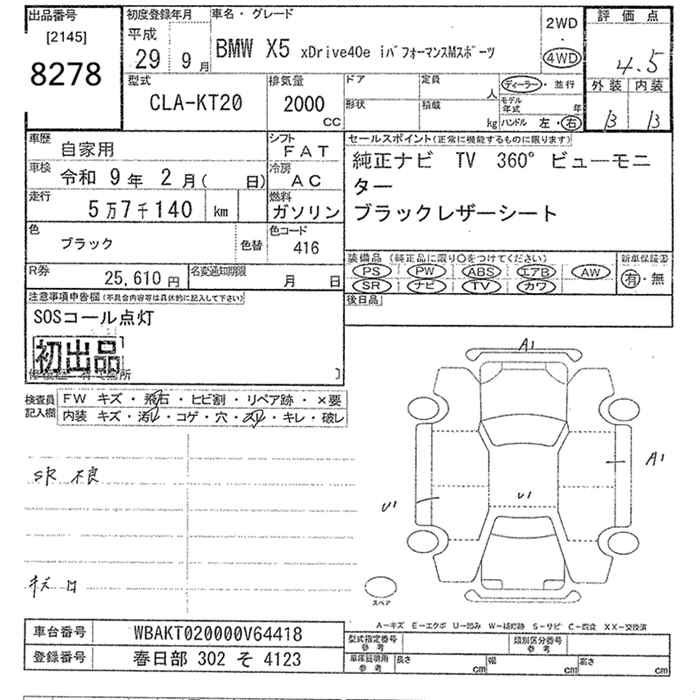 出品番号
[2145]
8278
初度登録年月
平成
29 9月
車名・グレード
BMW X5 xDrive40e iパフォーマンスMスポーツ
2WD
・
4WD
評価点
4.5
外装 内装
B B
型式
CLA-KT20
排気量
2000
CC
ドア
定員
人
形状
積載
kg
ディーラー・並行
モデル年式 年
ハンドル 左・右
車歴
自家用
シフト
FAT
車検
令和 9年 2月( 日)
冷房
AC
走行
5万7千140 km
燃料
ガソリン
色
ブラック
色替
色コード
416
R券
25,610円
名変通知期限
月 日
セールスポイント(正常に機能するものに限ります)
純正ナビ TV 360°ビューモニ
ター
ブラックレザーシート
装備品(純正品に限り〇をつけてください)
PS PW ABS エアB AW
SR ナビ TV カワ
新車保証書
有・無
後日品
注意事項申告欄(不具合内容等は具体的に記入して下さい)
SOSコール点灯
初出品
検査員
記入欄
FW キズ・飛石・ヒビ割・リペア跡・×要
内装 キズ・汚レ・コゲ・穴・スレ・キレ・破レ
SR 不良
A1
A1
U1
U1
スペア
A-キズ E-エクボ U-凹み W-補修跡 S-サビ C-腐食 XX-交換済
車台番号
WBAKT020000V64418
登録番号
春日部 302 そ 4123
型式指定番号
参考
類別区分番号
参考
車庫証明用
参考
長さ cm
幅 cm
高さ cm